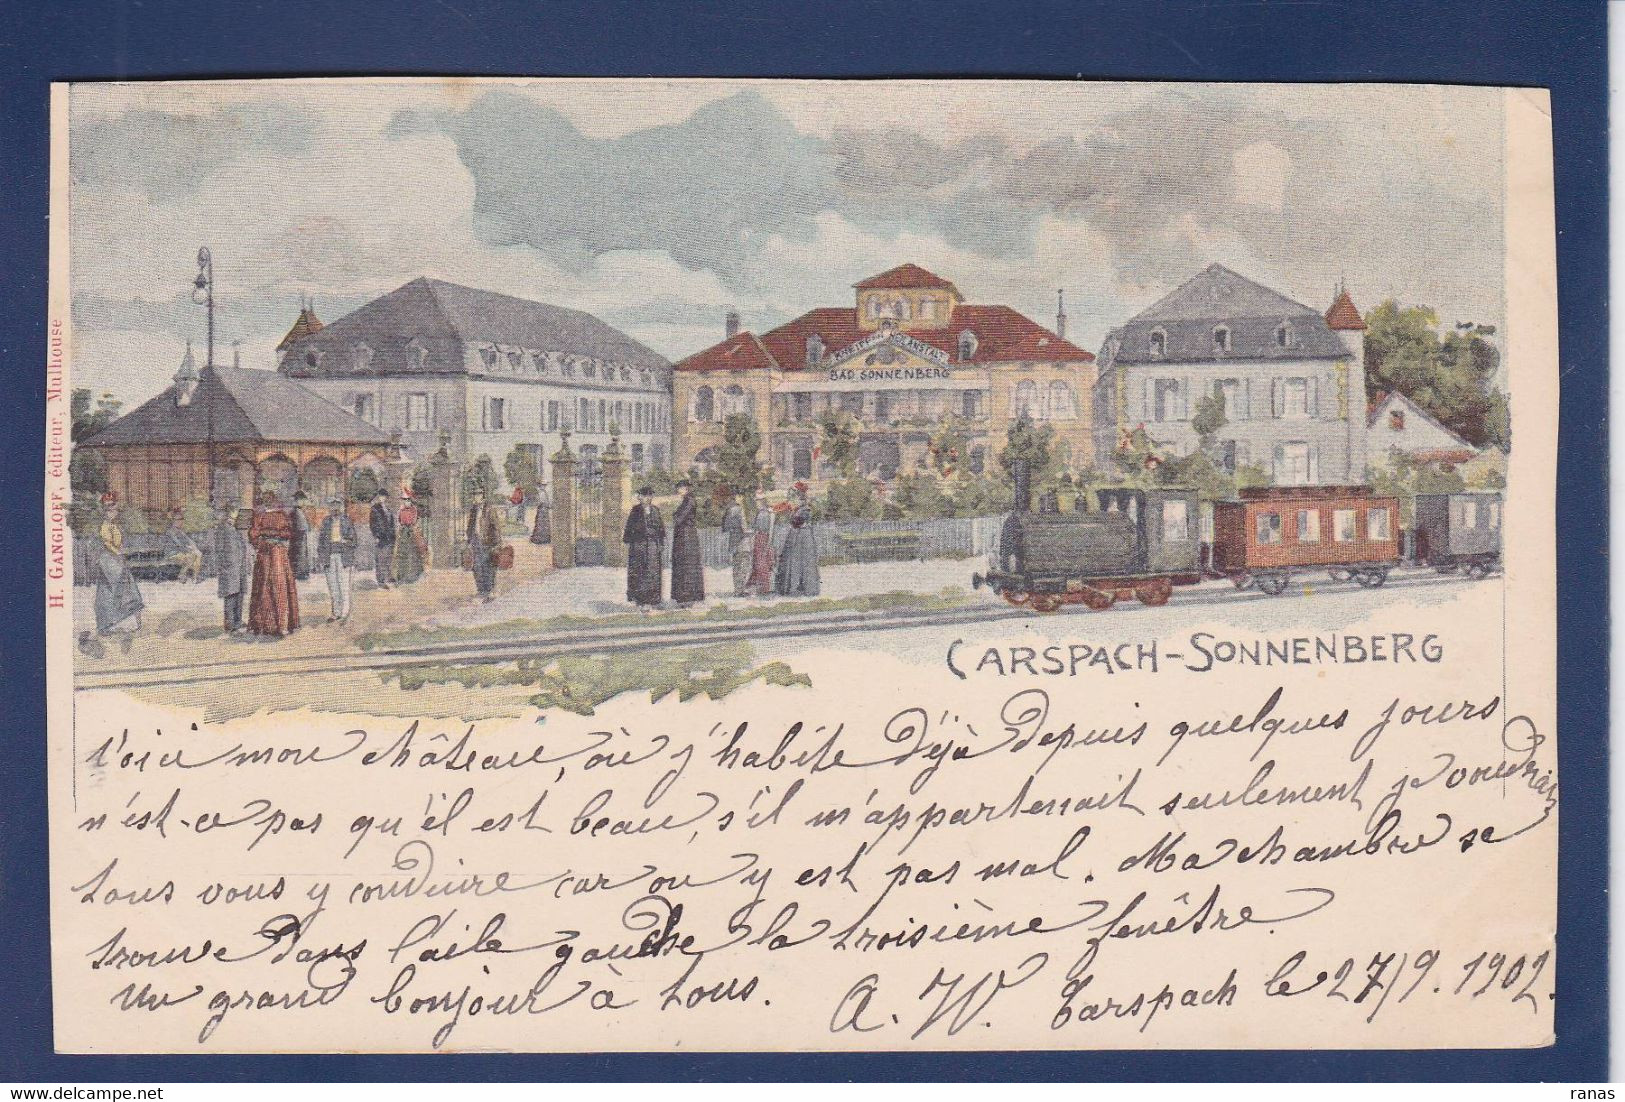 H. GANGLOFF, éditeur, Mulhouse
BAD SONNENBERG
CARSPACH-SONNENBERG
Voici mon château, où j'habite déjà depuis quelques jours
n'est-ce pas qu'il est beau, s'il m'appartenait seulement je voudrais
tous vous y conduire car on y est pas mal. Ma chambre se
trouve dans l'aile gauche la troisième fenêtre.
Un grand bonjour à tous. A. W. Carspach le 27/9.1902.
ranas